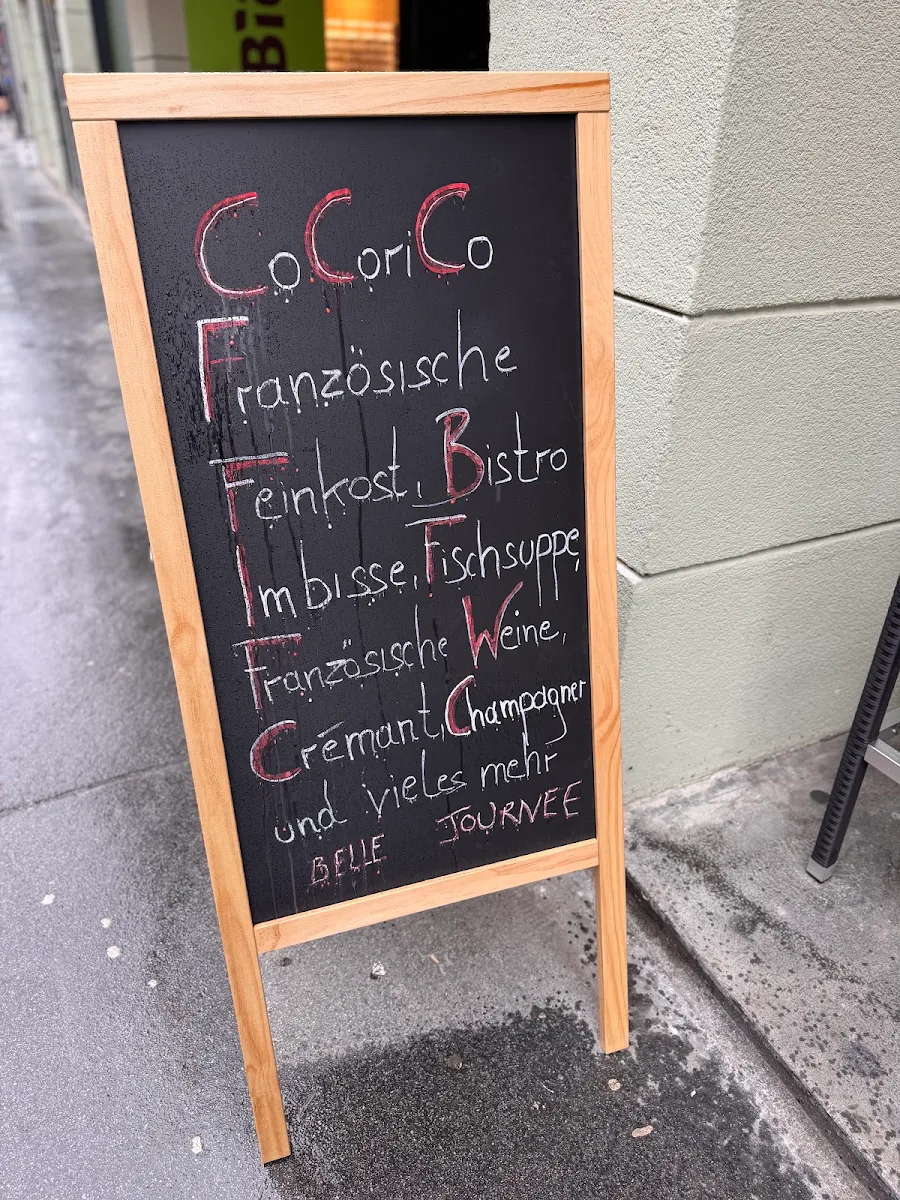 Bio
CoCoriCo
Französische
Feinkost, Bistro
Imbisse, Fischsuppe,
Französische Weine,
Crémant, Champagner
und vieles mehr
BELLE JOURNEE